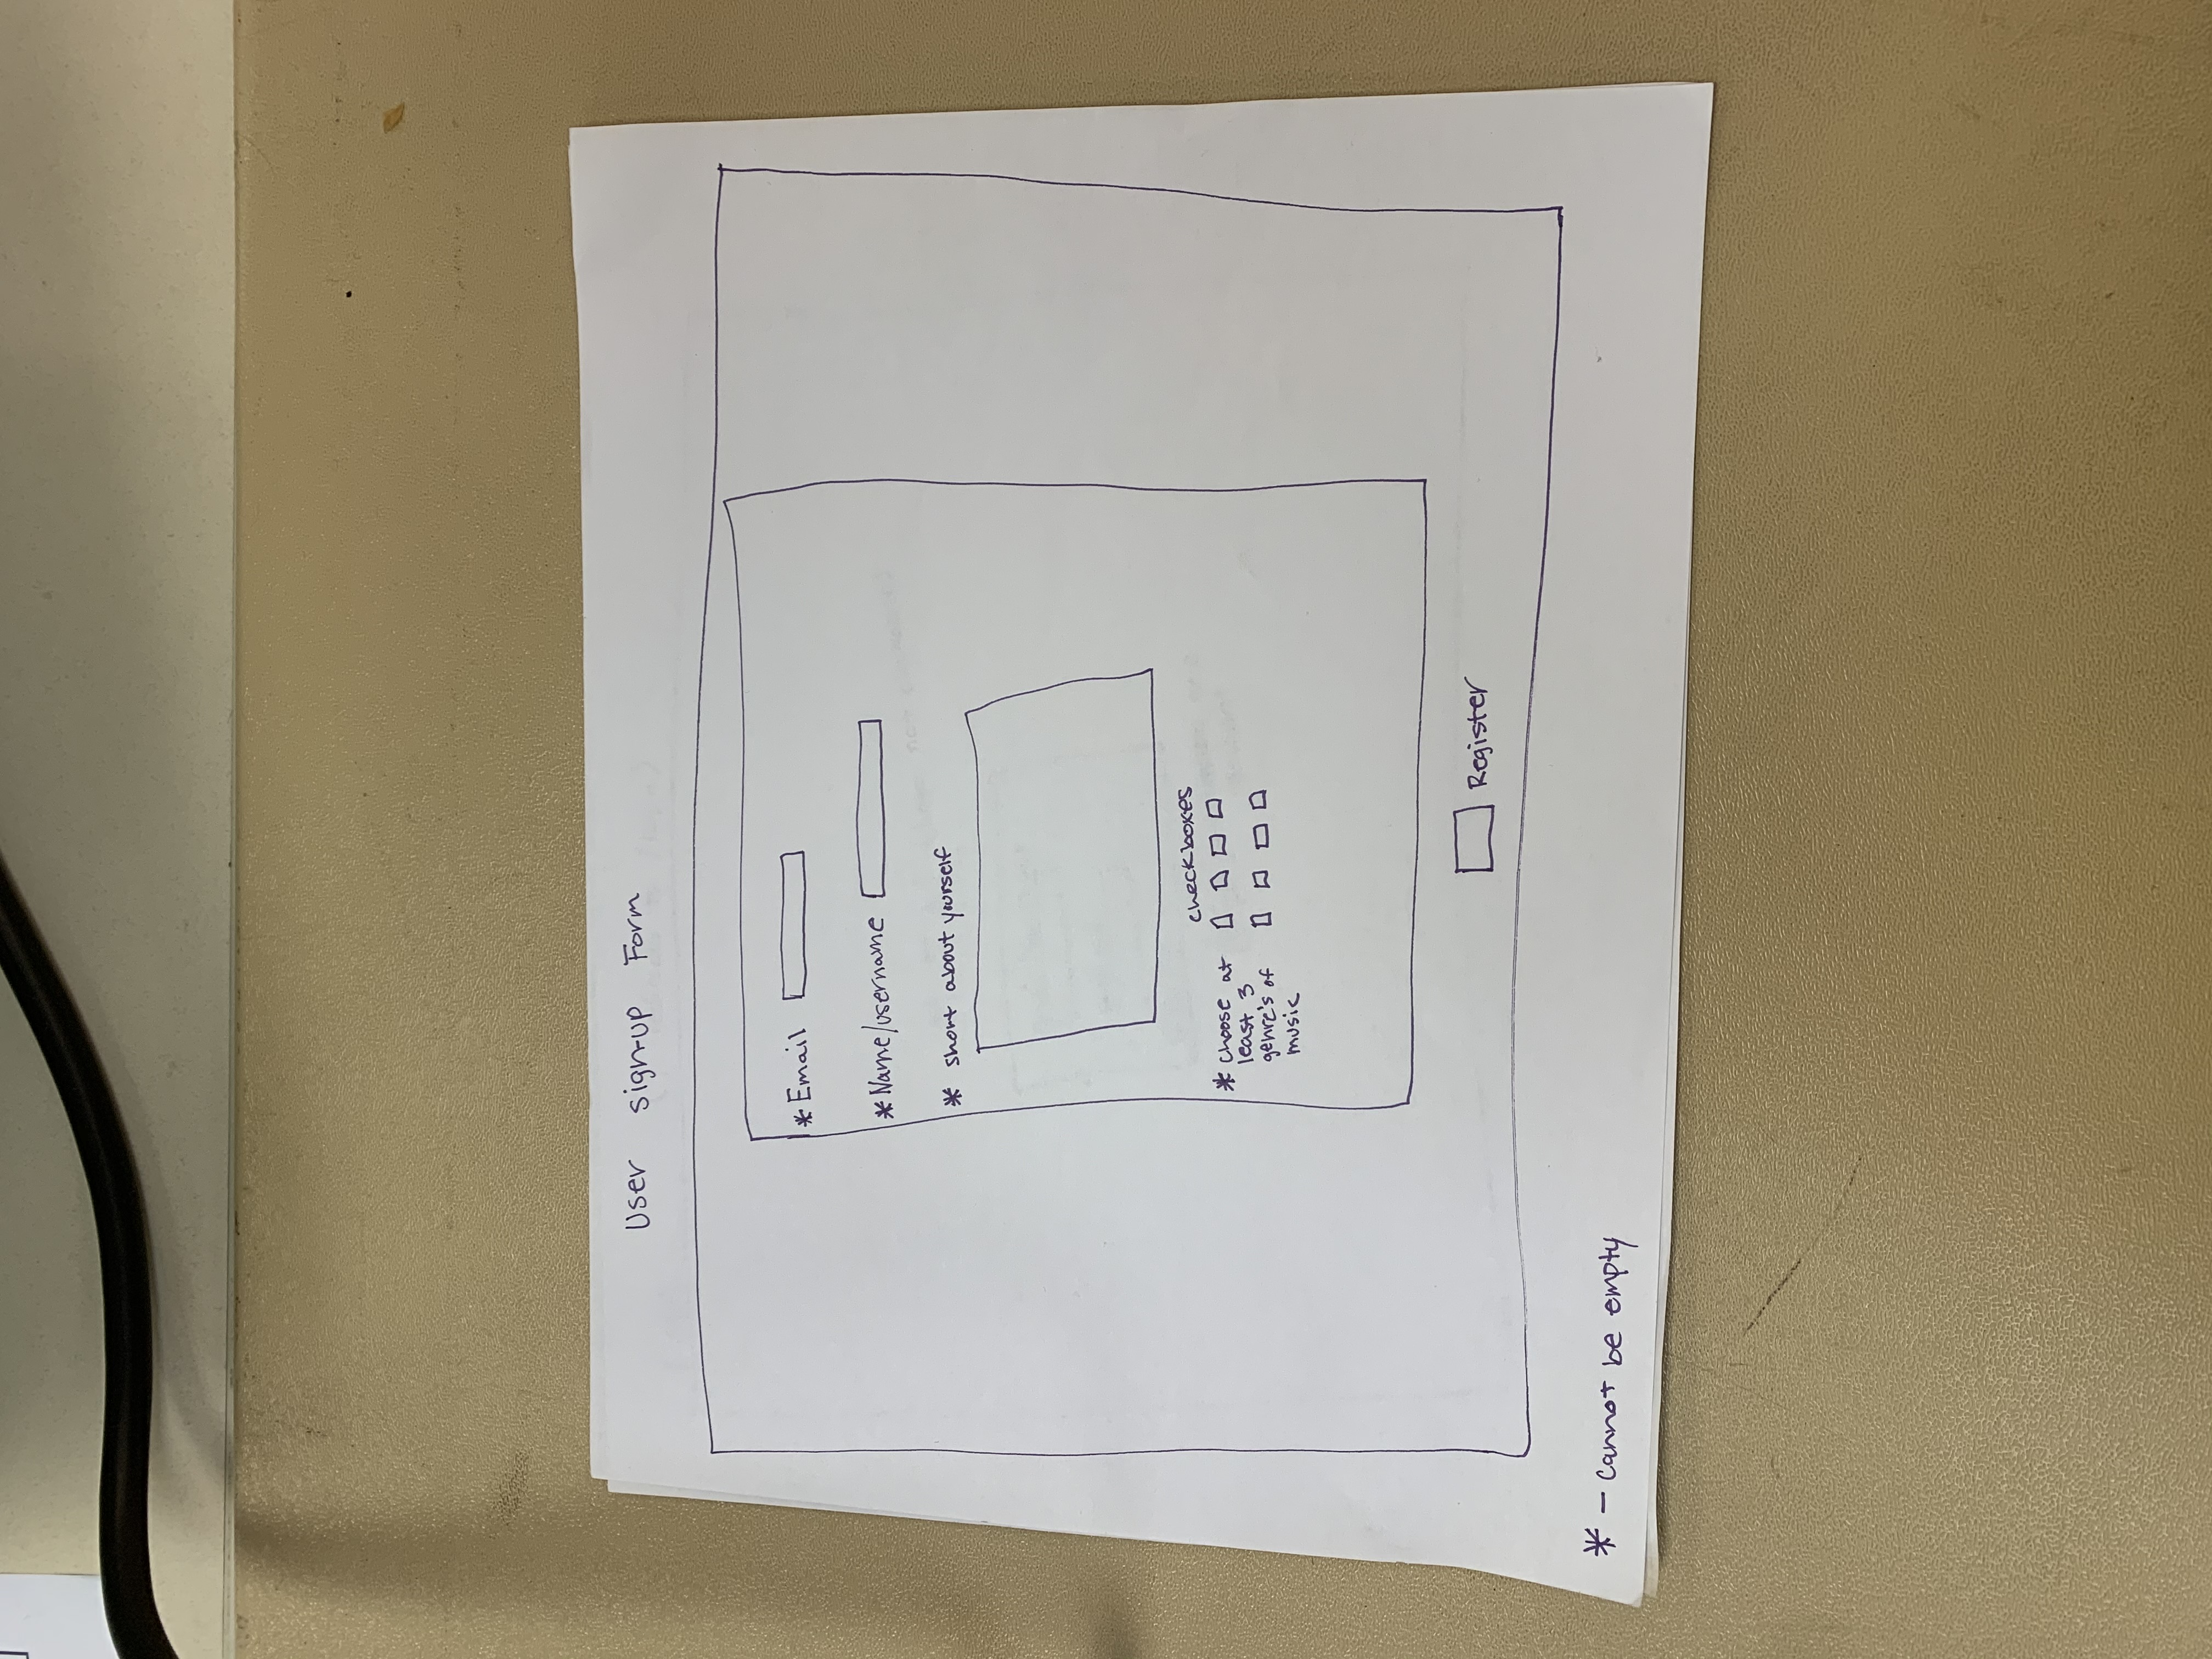 User sign-up Form
* Email
* Name/username
* short about yourself
checkboxes
* choose at
least 3
genre's of
music
Register
* - cannot be empty